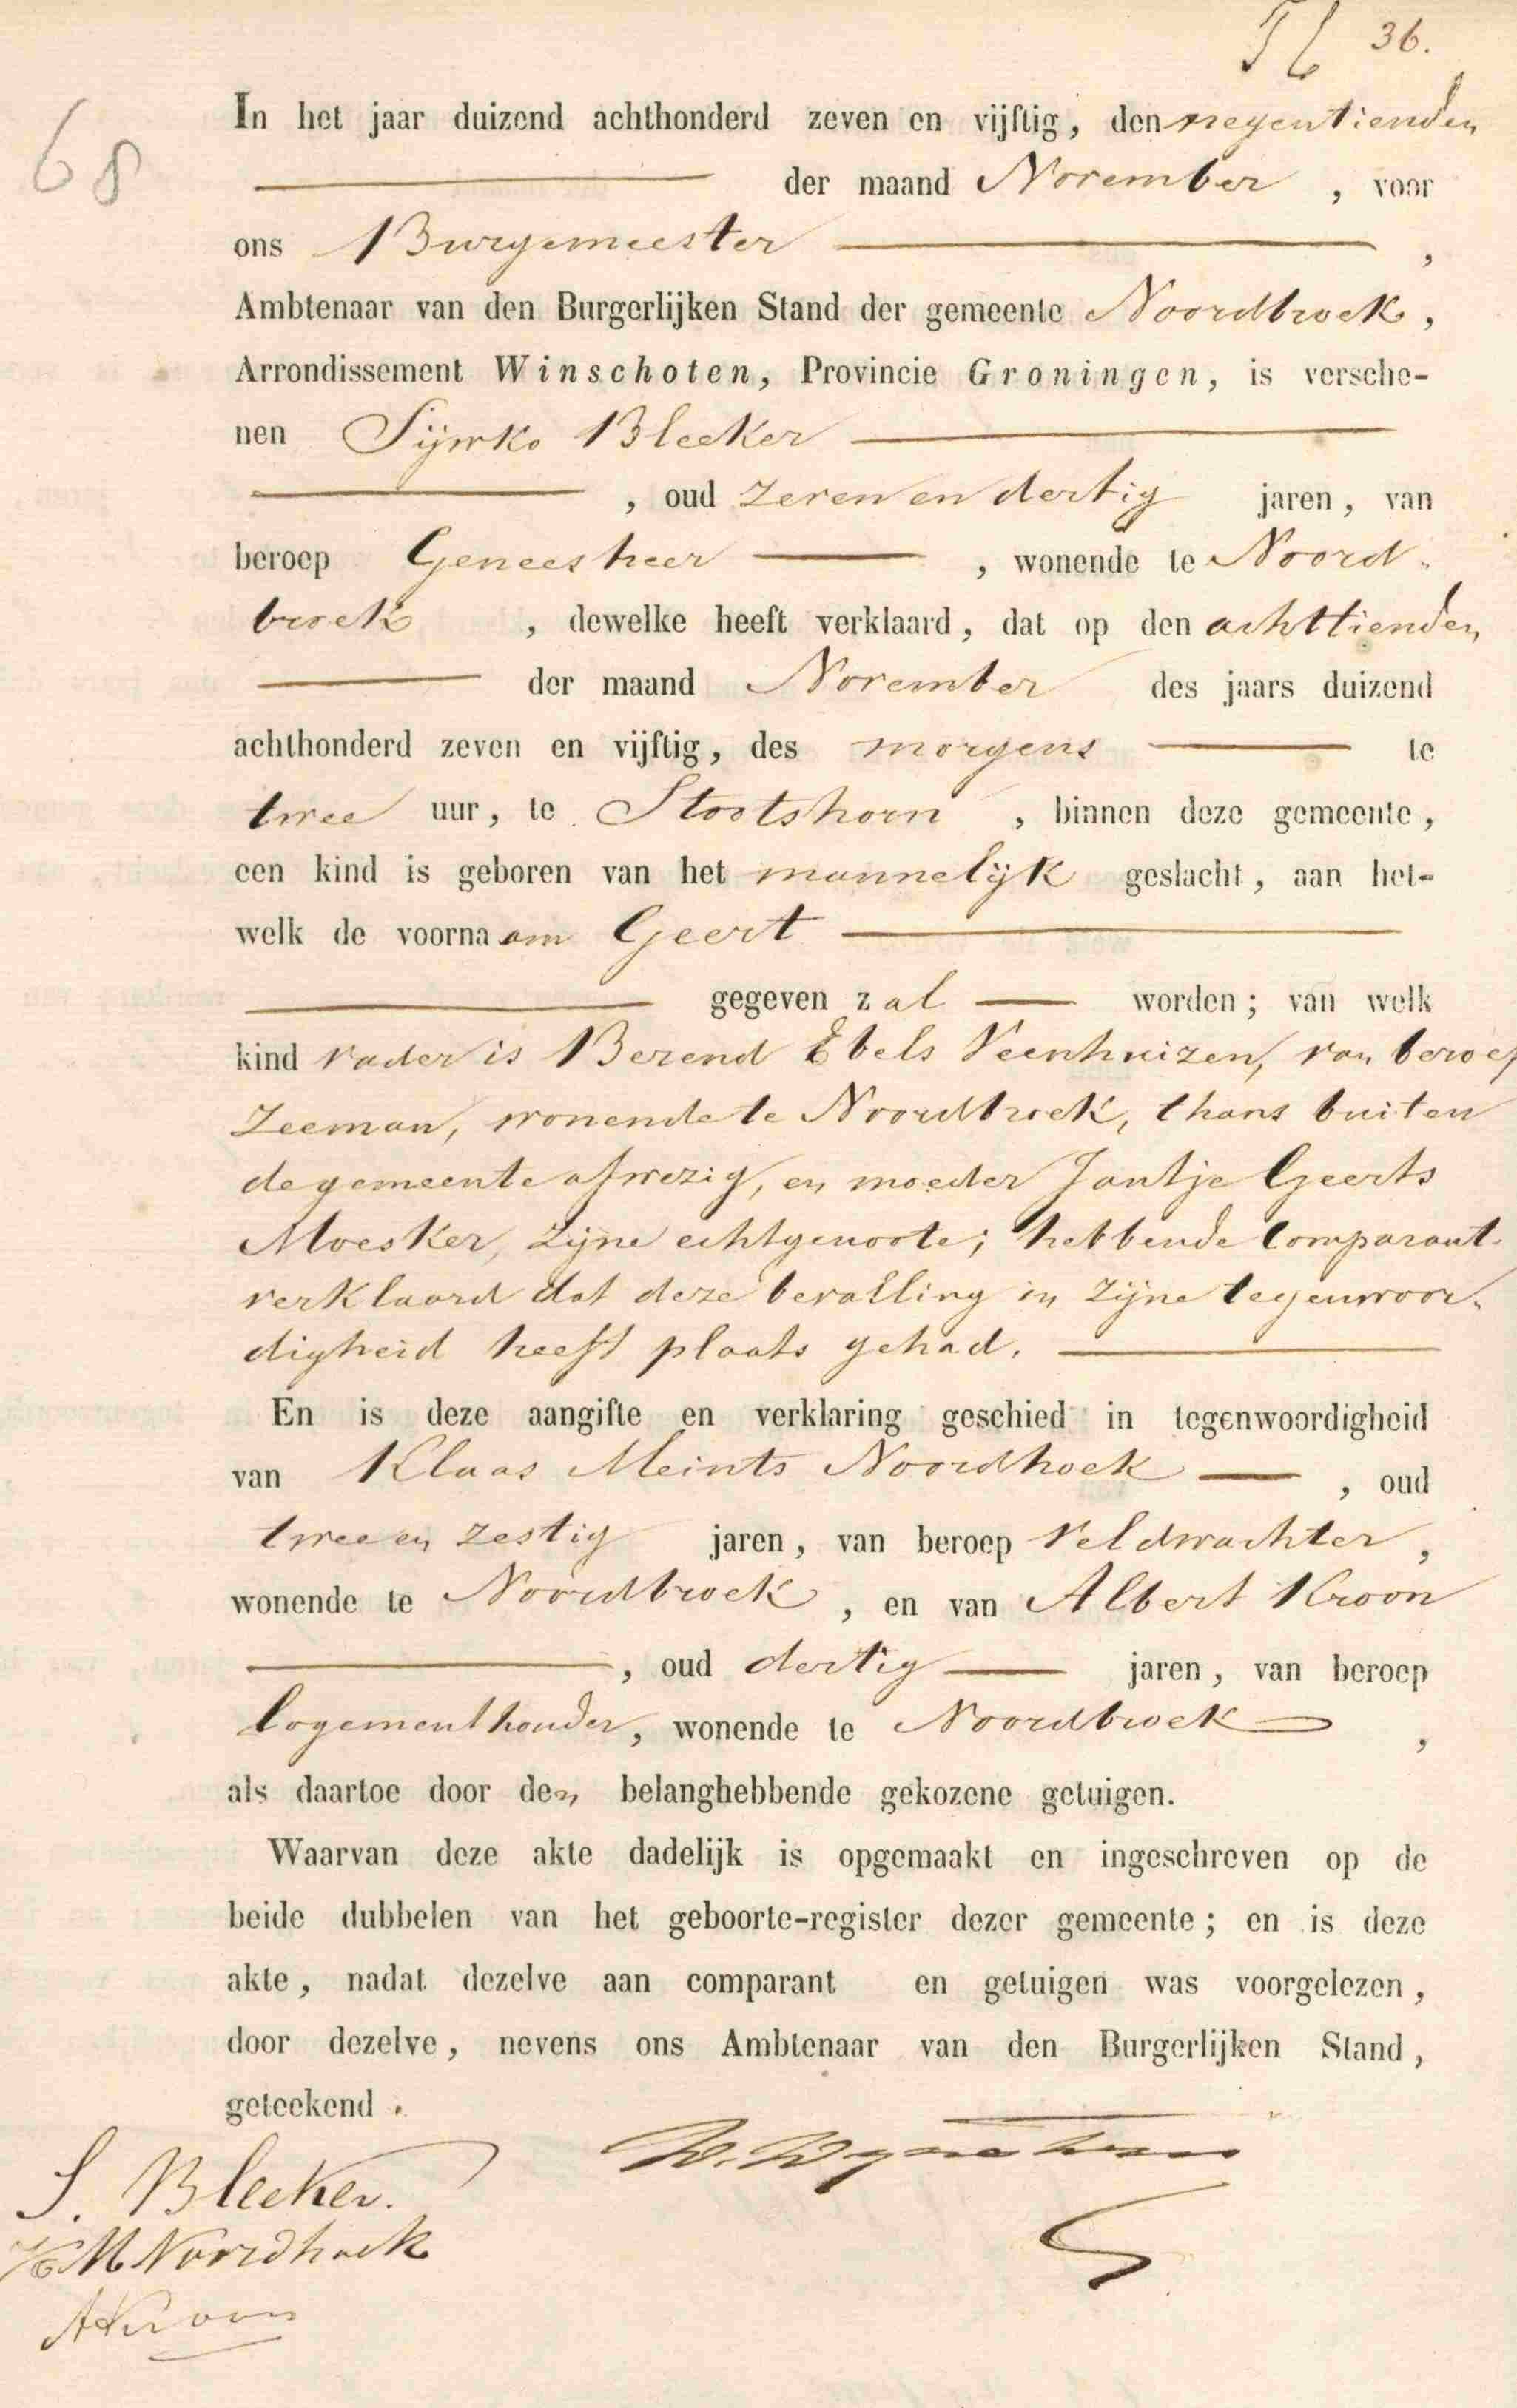 36.
68
In het jaar duizend achthonderd zeven en vijftig, den negentienden
der maand November, voor
ons Burgemeester,
Ambtenaar van den Burgerlijken Stand der gemeente Noordbroek,
Arrondissement Winschoten, Provincie Groningen, is versche-
nen Sijwko Bleeker
, oud zeven en dertig jaren, van
beroep Geneesheer, wonende te Noord-
broek, dewelke heeft verklaard, dat op den achttienden
der maand November des jaars duizend
achthonderd zeven en vijftig, des morgens te
twee uur, te Stootshorn, binnen deze gemeente,
een kind is geboren van het mannelijk geslacht, aan het-
welk de voornaam Geert
gegeven zal worden; van welk
kind vader is Berend Ebels Veenhuizen, van beroep
Zeeman, wonende te Noordbroek, thans buiten
de gemeente afwezig, en moeder Jantje Geerts
Moesker, zijne echtgenoote; hebbende Comparant
verklaard dat deze bevalling in zijne tegenwoor-
digheid heeft plaats gehad.
En is deze aangifte en verklaring geschied in tegenwoordigheid
van Klaas Meints Noordhoek, oud
twee en zestig jaren, van beroep Veldwachter,
wonende te Noordbroek, en van Albert Kroon
, oud dertig jaren, van beroep
logementhouder, wonende te Noordbroek,
als daartoe door den belanghebbende gekozene getuigen.
Waarvan deze akte dadelijk is opgemaakt en ingeschreven op de
beide dubbelen van het geboorte-register dezer gemeente; en is deze
akte, nadat dezelve aan comparant en getuigen was voorgelezen,
door dezelve, nevens ons Ambtenaar van den Burgerlijken Stand,
geteekend.
S. Bleeker.
KM Noordhoek
A Kroon